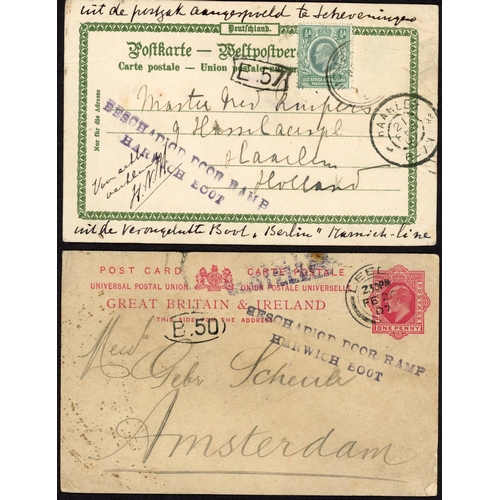 uit de postzak aangespoeld te Scheveningen
Deutschland.
Postkarte — Weltpostver
Carte postale — Union postale univers
Nur für die Adresse
E.57
BESCHADIGD DOOR RAMP
HARWICH BOOT
Master Fred Kuipers
9
Haarlem
Holland
HAARLEM
uit de Verongelukte Boot „Berlin" Harwich-line
POST CARD CARTE POSTALE
UNIVERSAL POSTAL UNION UNION POSTALE UNIVERSELLE
GREAT BRITAIN & IRELAND
THIS SIDE FOR THE ADDRESS
ONE PENNY
2.30PM
B.50
BESCHADIGD DOOR RAMP
HARWICH BOOT
Gebr Scheule
Amsterdam